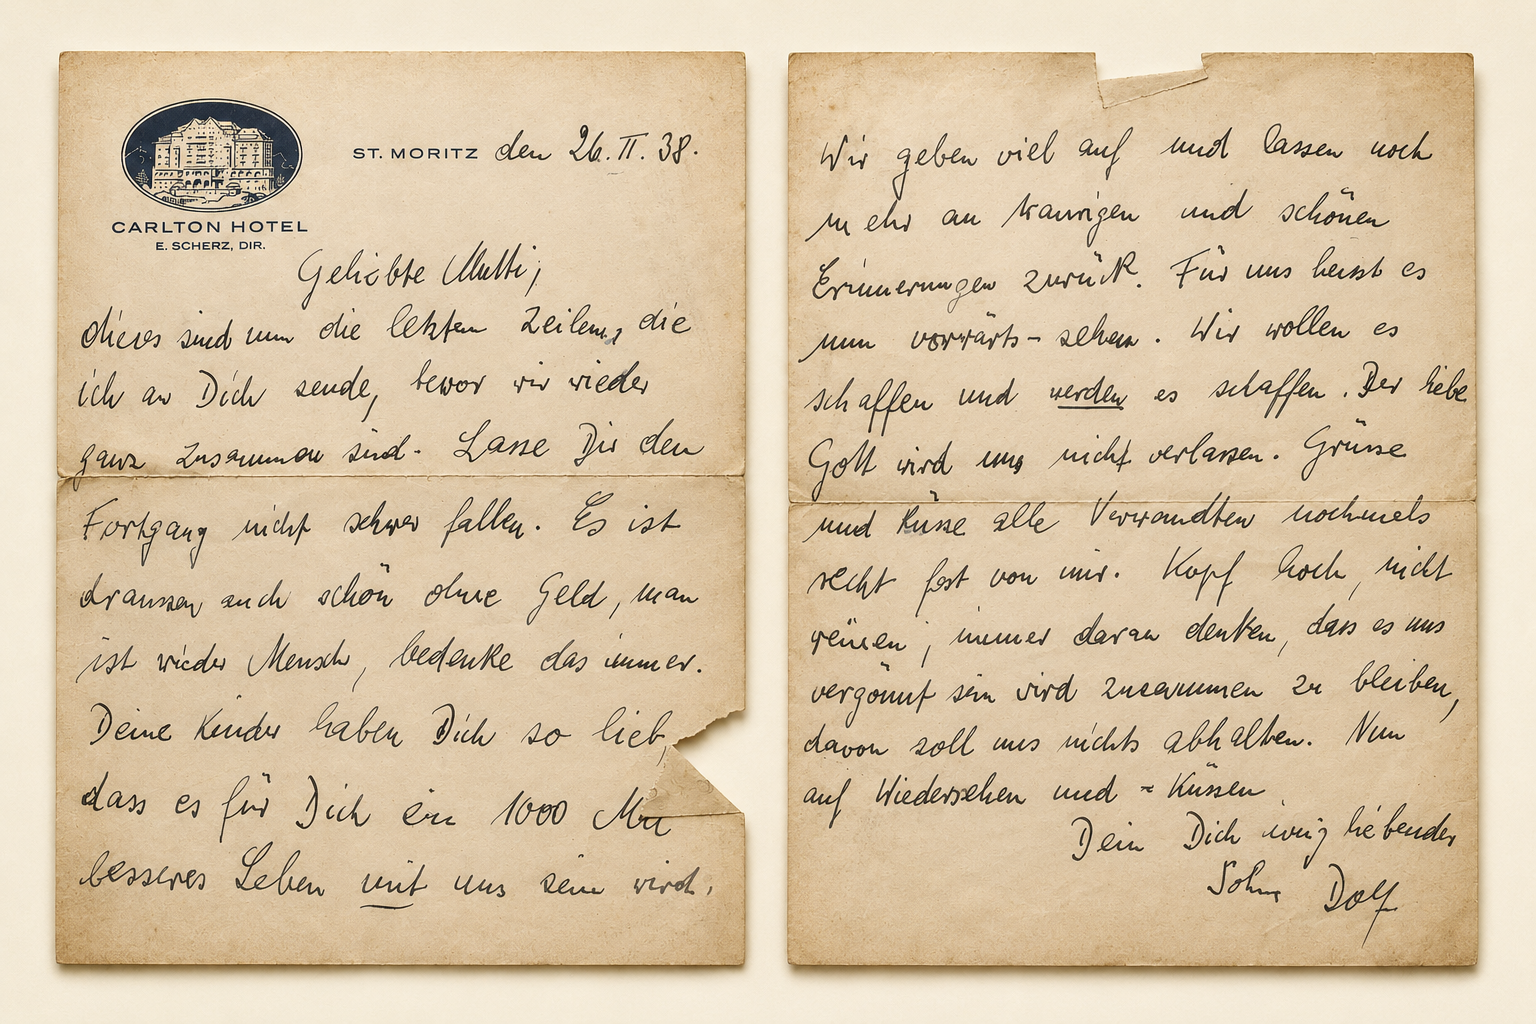 CARLTON HOTEL
E. SCHERZ, DIR.
ST. MORITZ den 26. II. 38.
Geliebte Mutti,
dieses sind nun die letzten Zeilen, die
ich an Dich sende, bevor wir wieder
ganz zusammen sind. Lasse Dir den
Fortgang nicht schwer fallen. Es ist
draussen auch schön ohne Geld, man
ist wieder Mensch, bedenke das immer.
Deine Kinder haben Dich so lieb,
dass es für Dich ein 1000
besseres Leben mit uns sein wird.
Wir geben viel auf und lassen noch
mehr an traurigen und schönen
Erinnerungen zurück. Für uns heisst es
nun vorwärts-sehen. Wir wollen es
schaffen und werden es schaffen. Der liebe
Gott wird uns nicht verlassen. Grüsse
und Küsse alle Verwandten nochmals
recht fest von mir. Kopf hoch, nicht
weinen, immer daran denken, dass es uns
vergönnt sein wird zusammen zu bleiben,
davon soll uns nichts abhalten. Nun
auf Wiedersehen und - Küssen
Dein Dich ewig liebender
Sohn Dolf